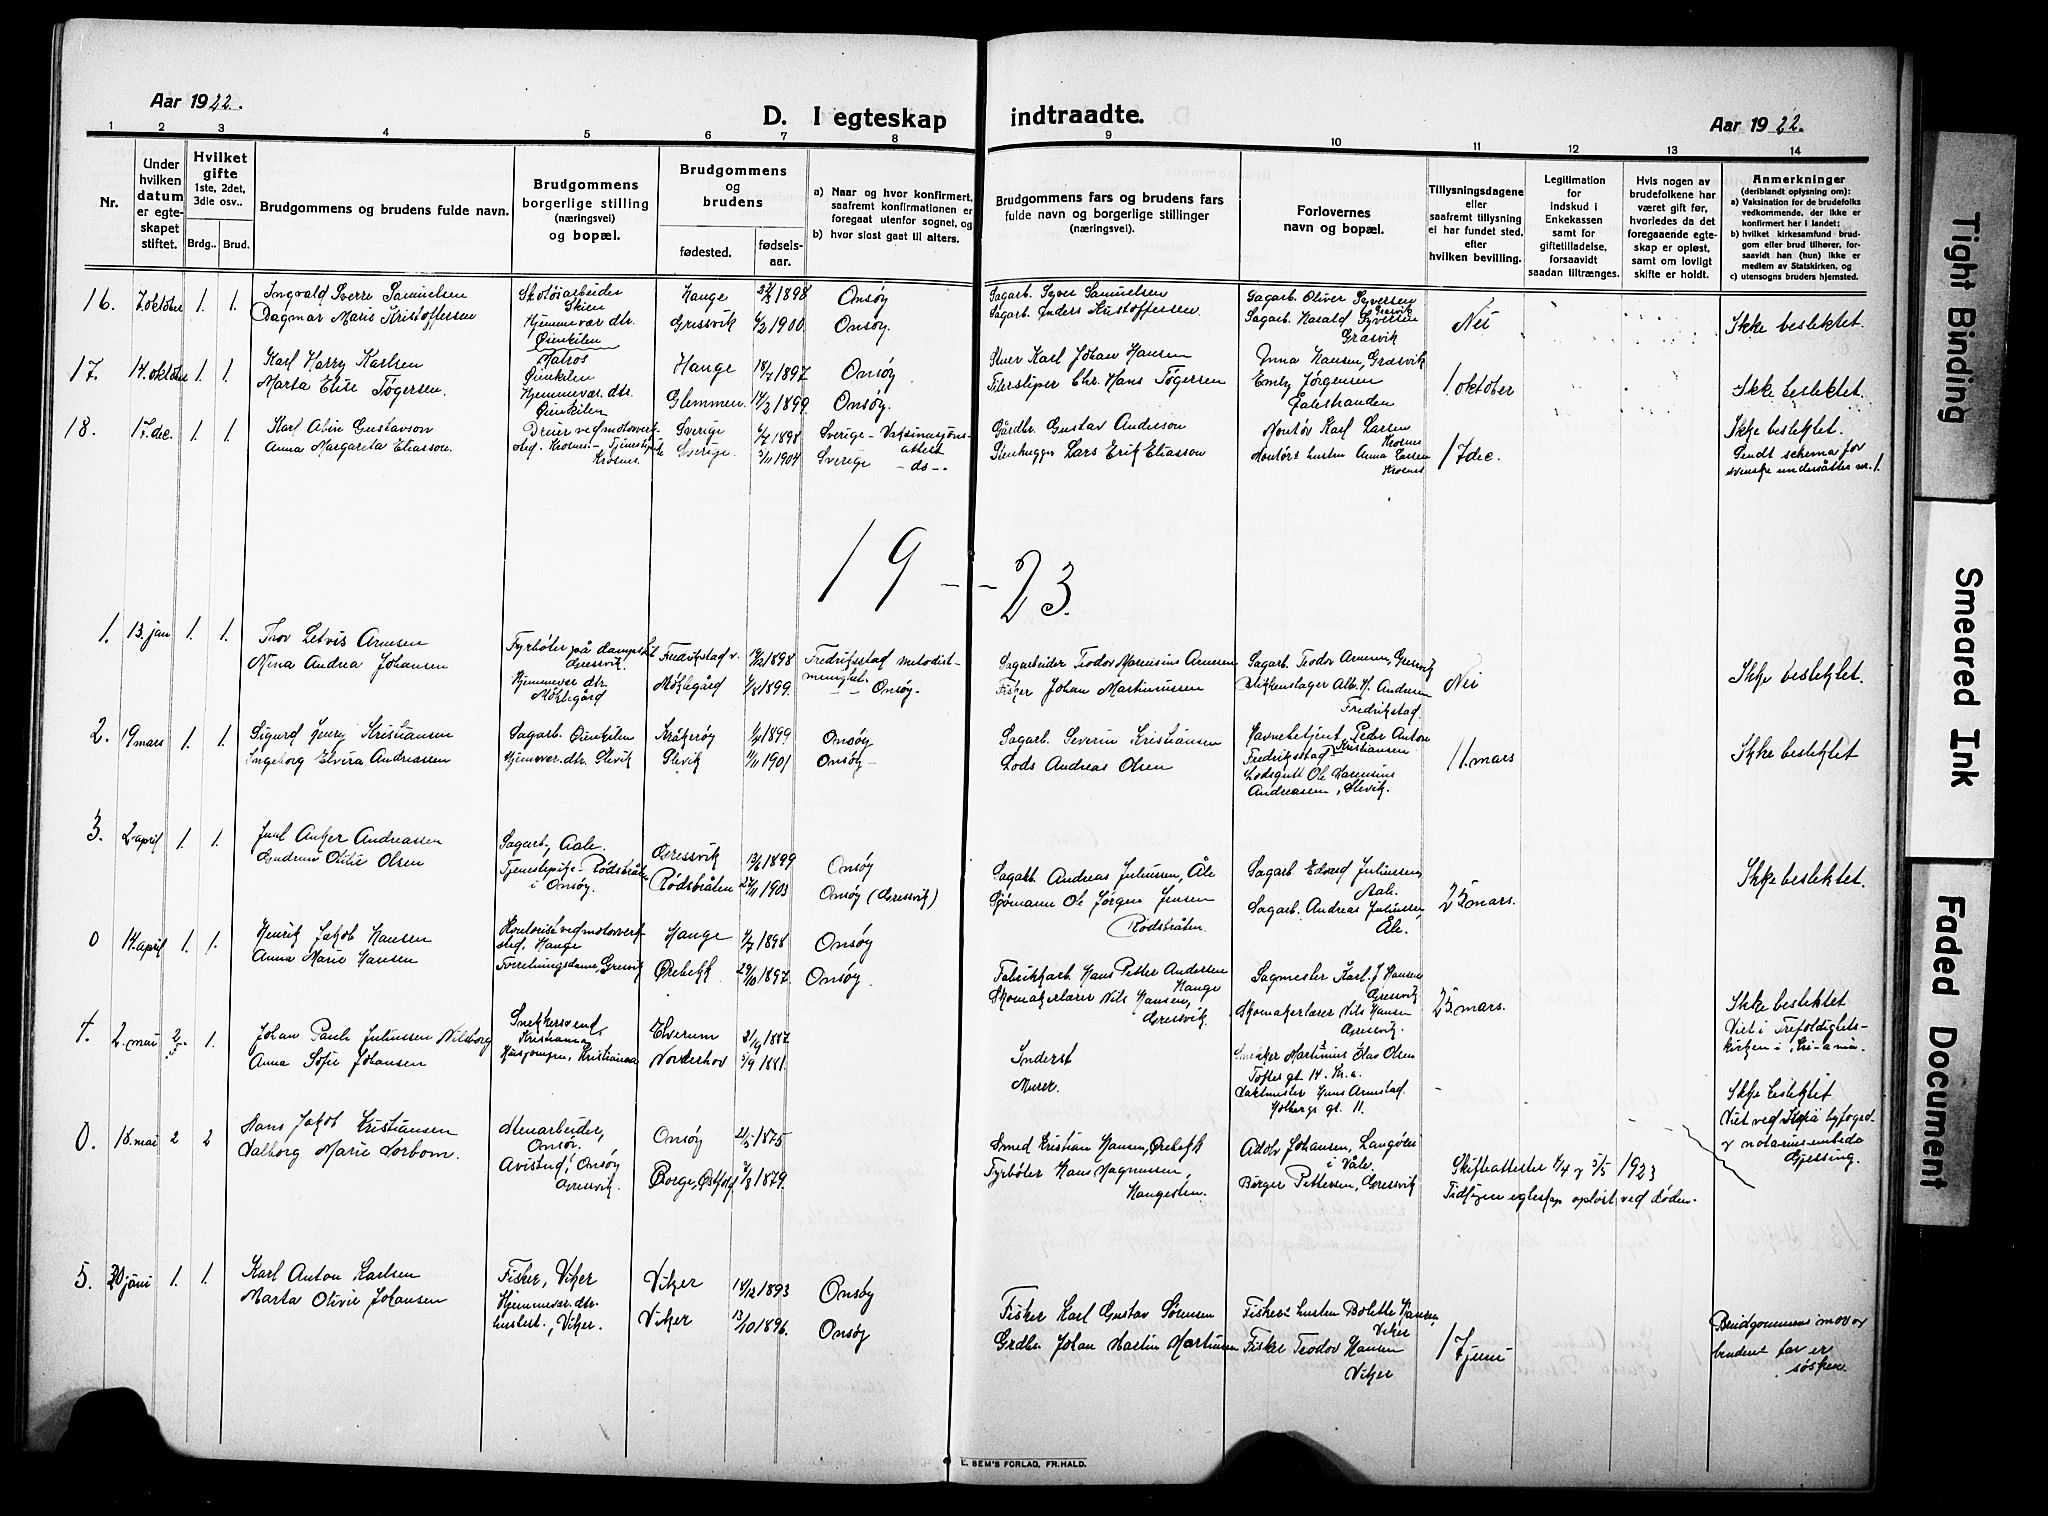 Aar 1922.
D. I egteskap indtraadte.
Aar 1922.
1 2 3 4 5 6 7 8 9 10 11 12 13 14
Nr.
Under hvilken datum er egteskapet stiftet.
Hvilket gifte 1ste, 2det, 3die osv..
Brdg.. Brud.
Brudgommens og brudens fulde navn.
Brudgommens borgerlige stilling (næringsvei) og bopæl.
Brudgommens og brudens
fødested. fødsels-aar.
a) Naar og hvor konfirmert, saafremt konfirmationen er foregaat utenfor sognet, og
b) hvor sidst gaat til alters.
Brudgommens fars og brudens fars fulde navn og borgerlige stillinger (næringsvei).
Forlovernes navn og bopæl.
Tillysningsdagene eller saafremt tillysning ei har fundet sted, efter hvilken bevilling.
Legitimation for indskud i Enkekassen samt for giftetilladelse, forsaavidt saadan tiltrænges.
Hvis nogen av brudefolkene har været gift før, hvorledes da det foregaaende egteskap er opløst, samt om lovlig skifte er holdt.
Anmerkninger (deriblandt oplysning om):
a) Vaksination for de brudefolks vedkommende, der ikke er konfirmert her i landet;
b) hvilket kirkesamfund brudgom eller brud tilhører, forsaavidt han (hun) ikke er medlem av Statskirken, og
c) utensogns bruders hjemsted.
16. 7. oktober 1. 1. Ingvald Sverre Samuelsen
Dagmar Marie Kristoffersen
Skotøiarbeider Skien
Hjemmevær. dtr. Øienkilen
Hauge 1898 Onsøy
Gressvik 1900. Onsøy.
Sagarb. Syver Samuelsen
Sagarb. Anders Kristoffersen
Sagarb. Oliver Syversen Gråsvik
Sagarb. Harald Syversen Gråsvik
Nei
Ikke beslektet.
17. 14. oktober 1. 1. Karl Harry Karlsen
Marta Elise Tøgersen.
Matros Øienkilen
Hjemmevær. dtr. Øienkilen
Hauge 18/7 1897 Onsøy
Glemmen. 14/2 1899. Onsøy.
Karl Johan Hansen
Chr. Hans Tøgersen
Anna Hansen, Gråsvik
Emly Jørgensen
1 oktober
Ikke beslektet.
18. 17. dec. 1. 1. Karl Gustavson
Anna Margareta Eliasson.
Dreier ved motorverksted. Krosnes. Tjenestepike Krosnes.
Sverige 1898 Sverige - Vaksinasjonsattest
Sverige. 3/11 1904 Sverige - ds -.
Gårdbr. Gustav Anderson
Stenhugger Lars Erik Eliasson
Montør Karl Larsen Krosnes
Montørs hustru Anna Larsen Krosnes
17 dec.
Ikke beslektet.
Sendt schema for svenske undersåtter nr. 1.
19 - - 23.
1. 13. jan 1. 1. Thor Arnesen
Nina Andrea Johansen
Fyrbøter på dampsk. Gressvik
Hjemmevær dtr. Møklegård
Fredrikstad v. 1898 Fredriksstad metodistmenighet.
Møklegård 1899. - Onsøy.
Sagarbeider Teodor Marensius Arnesen
Fisker Johan Martinussen
Sagarb. Teodor Arnesen, Gressvik
Blikkenslager Alb. H. Andersen Fredrikstad.
Nei
Ikke beslektet.
2. 19 mars 1. 1. Sigurd Henry Kristiansen
Ingeborg Elvira Andreassen
Sagarb. Øienkilen
Hjemmevær. dtr. Slevik
Kråkerøy 1899 Onsøy
Slevik 11/11 1901 Onsøy -
Sagarb. Severin Kristiansen
Lods Andreas Olsen
Havnebetjent Peder Anton Kristiansen
Fredriksstad
Lodsgutt Ole Larensius Andreasen, Slevik.
11. mars
Ikke beslektet
3. 2. april 1. 1. Juul Anker Andreassen
Gudrun Otilie Olsen
Sagarb, Aale.
Tjenestepike - Rødsbråten i Onsøy.
Gressvik 13/6 1899 Onsøy
Rødsbråten 27/11 1903 Onsøy (Gressvik)
Sagarb. Andreas Juliussen, Åle
Sjømann Ole Jørgen Jensen Rødsbråten.
Sagarb. Edvard Juliussen, Aale.
Sagarb. Andreas Juliussen, Åle.
25 mars.
Ikke beslektet.
0 14. april 1. 1. Henrik Jakob Hansen
Anna Marie Hansen
Kontorist ved motorverksted. Hauge
Forretningsdame, Gressvik
Hauge 1898 Onsøy
Ørebekk 29/10 1897. Onsøy.
Fabrikkarb. Hans Petter Andersen Hauge
Skomakerlærer Nils Hansen, Gressvik.
Sagmester Karl J Hansen Gressvik
Skomakerlærer Nils Hansen Gressvik.
25. mars.
Ikke beslektet
Viet i Trefoldighetskirken i Kri-ania.
4. 2. mai 1. Johan Pauli Juliussen Nilsborg
Anna Sofie Johansen
Snekkersvend, Kristiania
Husjomfru, Kristiania
Elverum 21/9 1887
Norderhov 3/9 1881.
Inderst
Murer.
Snekker Martinius Elas Olsen
Toftes gt 14. Kr. a.
Hans Armstad
Holbergs gt. 11.
-
Ikke beslektet
Viet ved byfoged og notarius
Gjessing.
0. 18. mai 2 2 Hans Jakob Kristiansen
Valborg Marie Lorbom.
Stenarbeider, Onsøy.
Avistud i Onsøy Gressvik.
Onsøy 21/5 1875
Borge, Østfold 1879.
Smed Kristian Hansen, Ørebekk
Fyrbøter Hans Magnussen, Haugesten.
Adolv Johansen, Langøen i Våle.
Birger Pettersen, Gressvik
Skifteattester 4/4 og 5/5 1923
Tidligere egteskap opløst ved døden.
5. 30 juni 1. 1. Karl Anton Karlsen
Marta Olivie Johansen
Fisker, Viker
Hjemmevær. dtr. hustert., Viker.
Viker 18/12 1893 Onsøy
Viker 13/10 1896. Onsøy
Fisker Karl Gustav Sørensen
Grdbr. Johan Martin Martinsen
Fisker's hustru Bolette Hansen, Viker
Fisker Teodor Hansen Viker
17 juni
Brudgommens mor og brudens far er søsken.
E. SEM'S FORLAG, FR.HALD.
Tight Binding
Smeared Ink
Faded Document